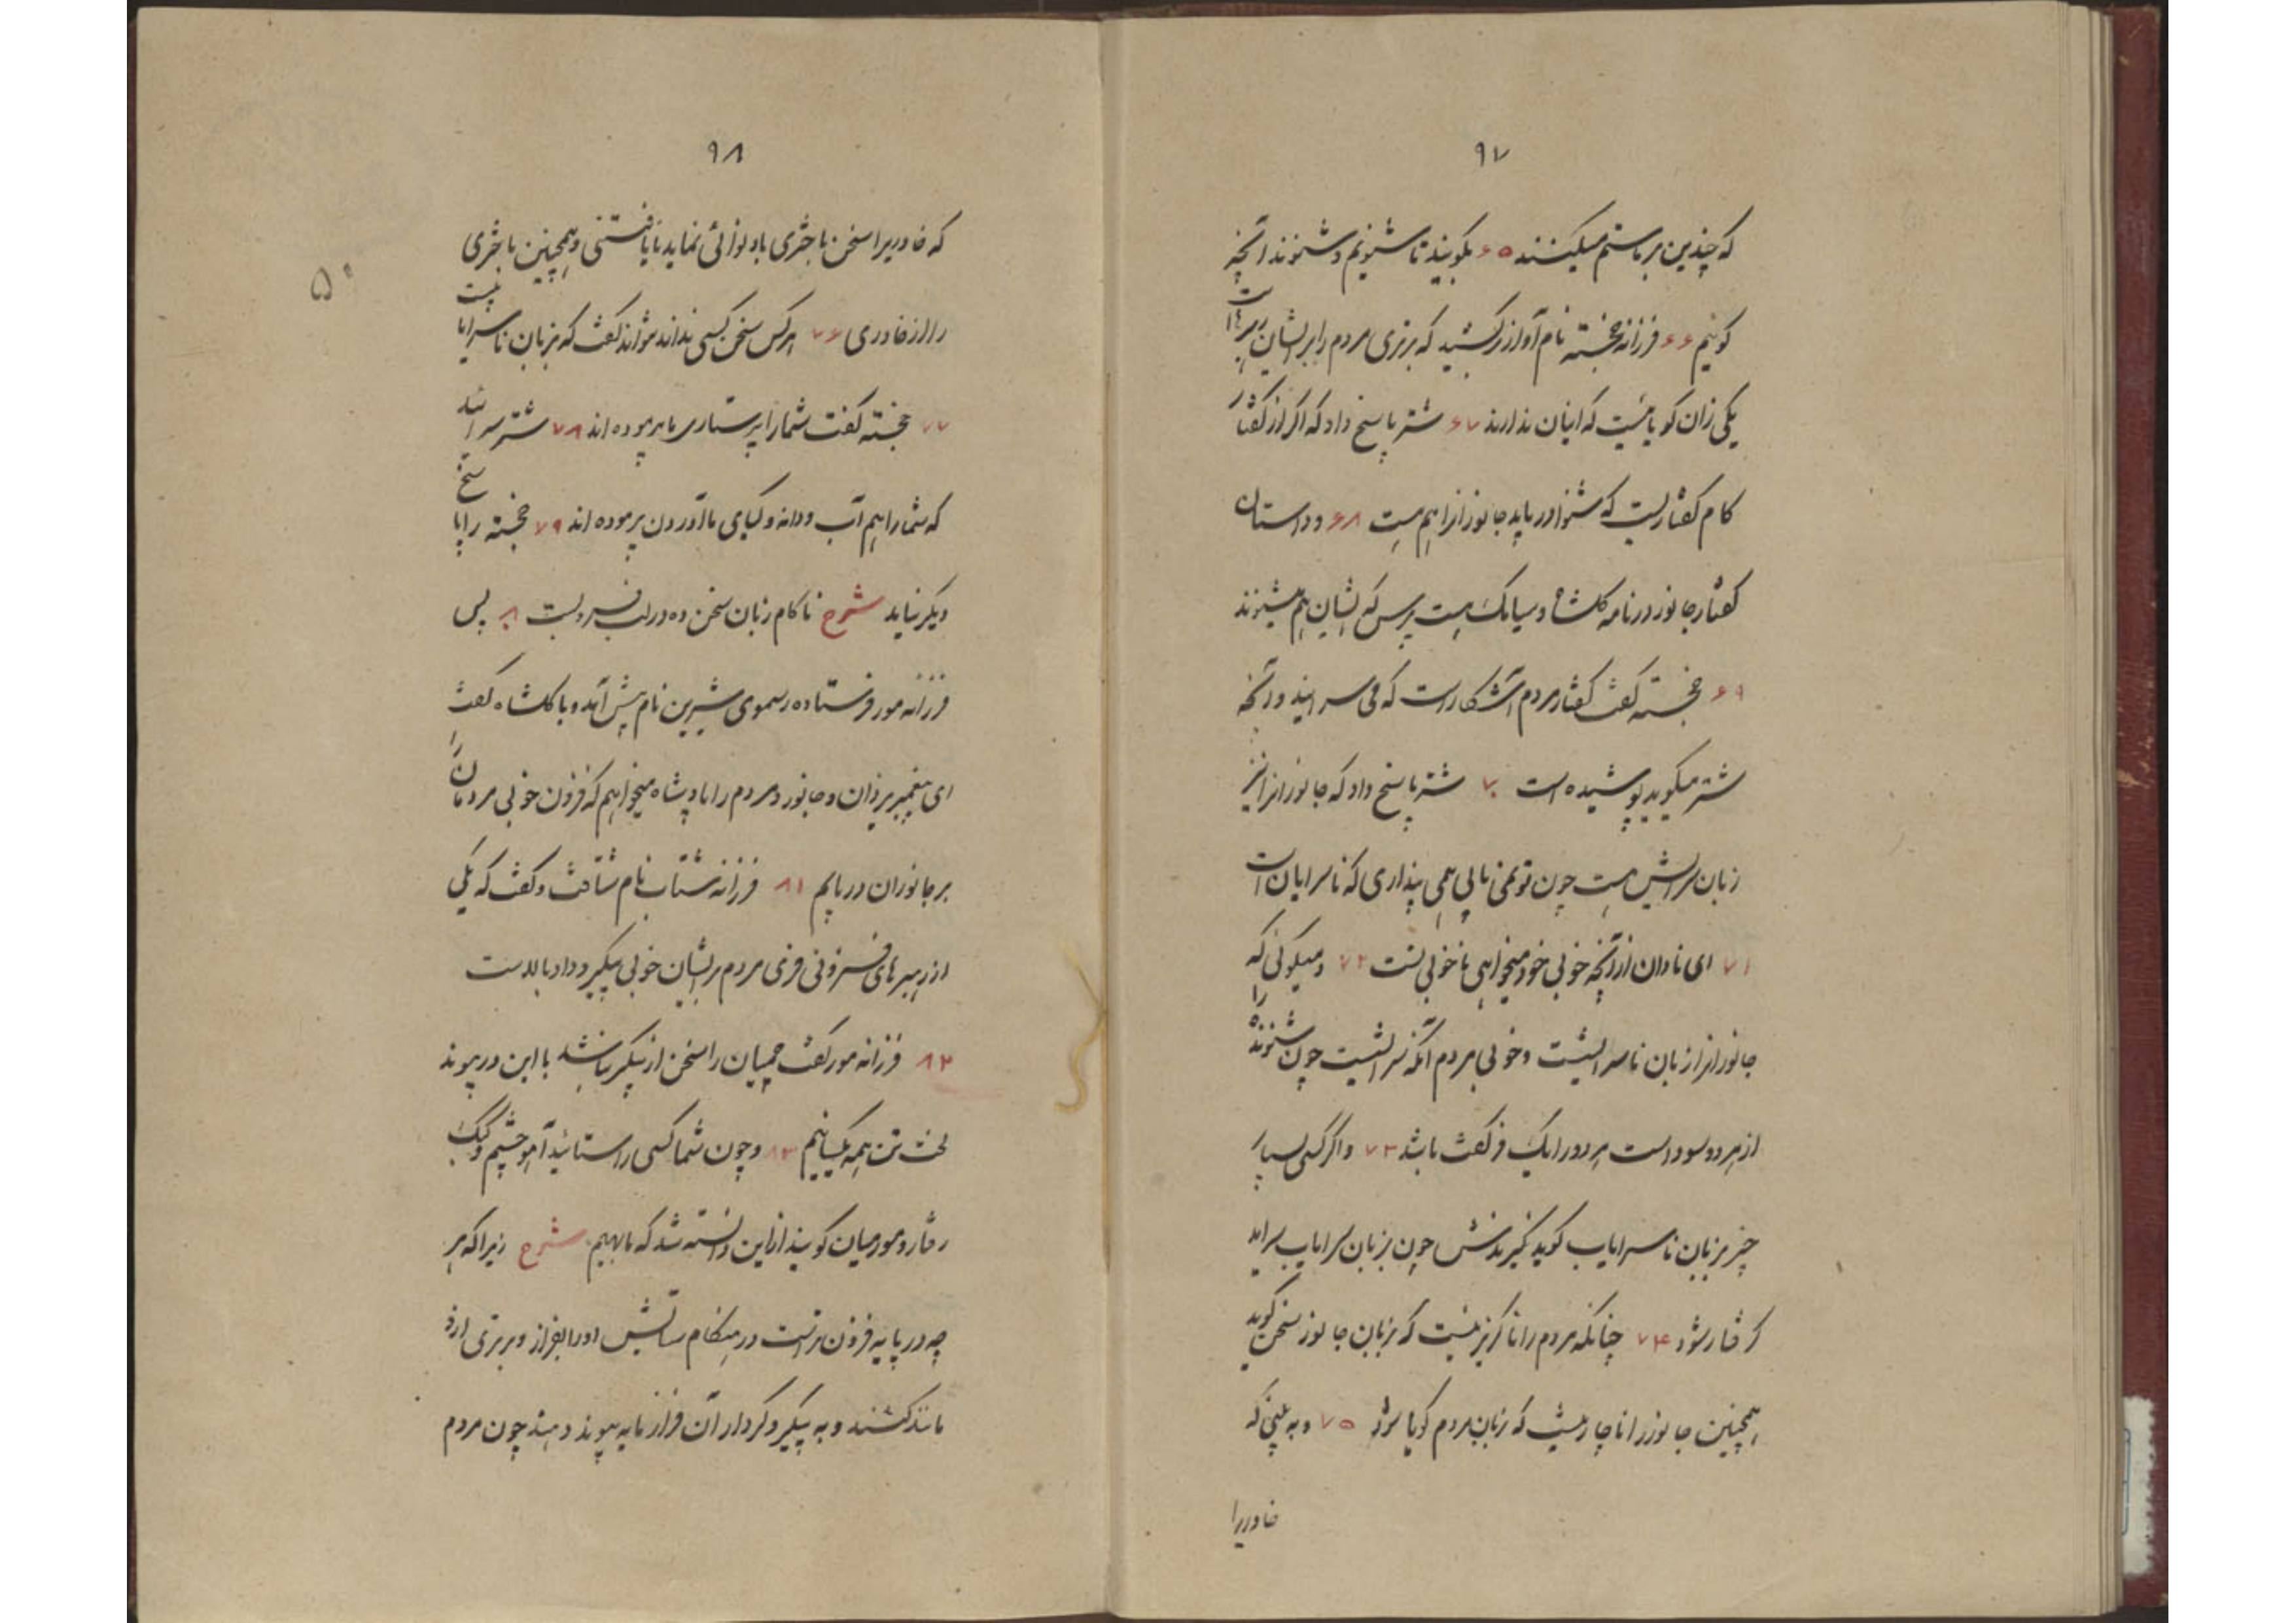 ۹۷
که چندین بر ما ستم میکنند ۶۵ بگویند تا شنویم و شنوند آنچه
گوئیم ۶۶ فرزانه خجسته نام آواز برکشید که برتری مردم را بر ایشان رهبرهاست
یکی زان گویائیست که اینان ندارند ۶۷ شتر پاسخ داد که اگر از گفتار
کام گفتاریست که شنوا دریابد جانورانرا هم هست ۶۸ و داستان
گفتار جانور در نامه گلشاه و سیامک هست پرس که ایشان هم میشنوند
۶۹ خجسته گفت گفتار مردم آشکار است که می سرایند و آنچه
شتر میگوید پوشیده است ۷۰ شتر پاسخ داد که جانورانرا نیز
زبان سرایش هست چون تو نمی یابی همی پنداری که ناسرایان است
۷۱ ای نادان از آنچه خوبی خود میخواهی ناخوبی تست ۷۲ و میگوئی که
جانورانرا زبان ناسرائیست و خوبی مردم آنکه سرائیست چون شنونده را
از هر دو سود است هر دو را یک فرگفت باشد ۷۳ و اگر کسی بسیار
چیز بزبان ناسرایاب گوید نگیرندش چون بزبان سرایاب سراید
گرفتار شود ۷۴ چنانکه مردم را ناگریز نیست که بزبان جانور سخن گوید
همچنین جانور را ناچار نیست که زبان مردم گویا شود ۷۵ و به بینی که
خاوریرا
۹۸
که خاوریرا سخن با ختری باد نوائی نماید نایافتنی و همچنین باختری
را از خاوری ۷۶ هرکس سخن کسی نداند نتواند گفت که بزبان ناسرایا نیست
۷۷ خجسته گفت شما را پرستاری ما پرموده اند ۷۸ شتر سرائید
که شما را هم آب و دانه و گیای ما آوردن پرموده اند ۷۹ خجسته را پاسخ
دیگر نیاید شرح ناکام زبان سخن ده در لب فروبست ۸۰ پس
فرزانه مور فرستاده رسموی شیرین نام پیش آمد و با گلشاه گفت
ای پیغمبر یزدان و جانور و مردم را پادشاه میخواهم که فزون خوبی مردمان را
بر جانوران دریابم ۸۱ فرزانه شتاب نام شتافت و گفت که یکی
از رهبرهای فسزونی فری مردم بر ایشان خوبی پیکر و داد بالاست
۸۲ فرزانه مور گفت چمیان را سخن از پیکر نباشد با این در پیوند
لخت تن همه یکسانیم ۸۳ و چون شما کسی را ستائید آهو چشم و کبک
رفتار و مورمیان گویند از این دانسته شد که ما بهیم شرح زیرا که هر
چه در پایه فزون تر است در هنگام ستایش او را بفراز و برتری ارز
مانند کنند و به پیکر و کردار آن فراز پایه پیوند دهند چون مردم
۵۰